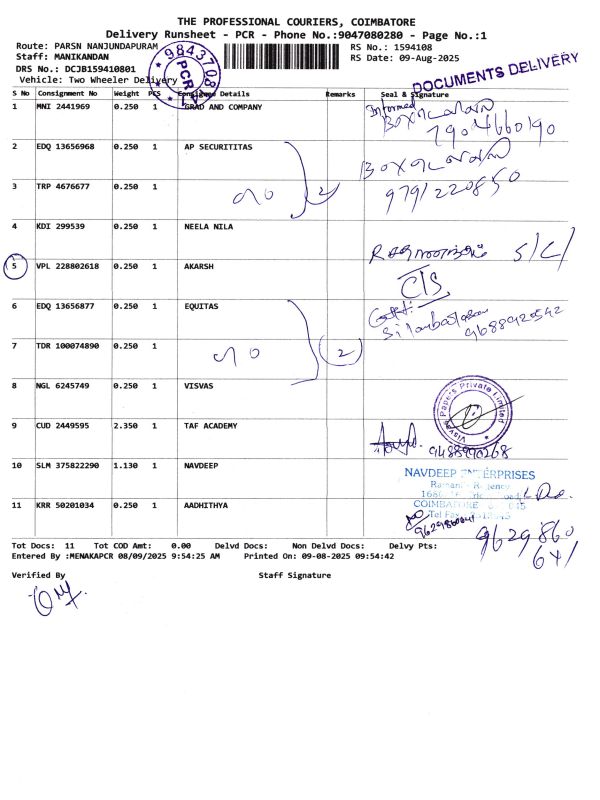 THE PROFESSIONAL COURIERS, COIMBATORE
Delivery Runsheet - PCR - Phone No.:9047080280 - Page No.:1
Route: PARSN NANJUNDAPURAM
RS No.: 1594108
Staff: MANIKANDAN
RS Date: 09-Aug-2025
DRS No.: DCJB159410801
Vehicle: Two Wheeler Delivery
984370
PCR
DOCUMENTS DELIVERY
S No Consignment No Weight PCS Consignee Details Remarks Seal & Signature
1 MNI 2441969 0.250 1 GRAD AND COMPANY
Informed
7904660190
2 EDQ 13656968 0.250 1 AP SECURITITAS
3 TRP 4676677 0.250 1 2
9791220850
4 KDI 299539 0.250 1 NEELA NILA
S/C/
5 VPL 228802618 0.250 1 AKARSH
C/S.
6 EDQ 13656877 0.250 1 EQUITAS
9688920542
7 TDR 100074890 0.250 1 2
8 NGL 6245749 0.250 1 VISVAS
Visvas Papers Private Limited
9 CUD 2449595 2.350 1 TAF ACADEMY
9488990268
10 SLM 375822290 1.130 1 NAVDEEP
NAVDEEP ENTERPRISES
COIMBATORE
Tel Fax
11 KRR 50201034 0.250 1 AADHITHYA
9629860641
9629860
641
Tot Docs: 11 Tot COD Amt: 0.00 Delvd Docs: Non Delvd Docs: Delvy Pts:
Entered By :MENAKAPCR 08/09/2025 9:54:25 AM Printed On: 09-08-2025 09:54:42
Verified By Staff Signature